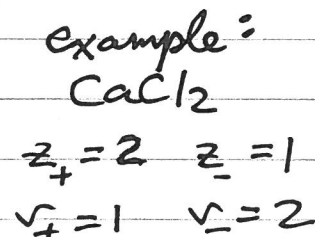 example:
CaCl2
z+ = 2 z- = 1
ν+ = 1 ν- = 2